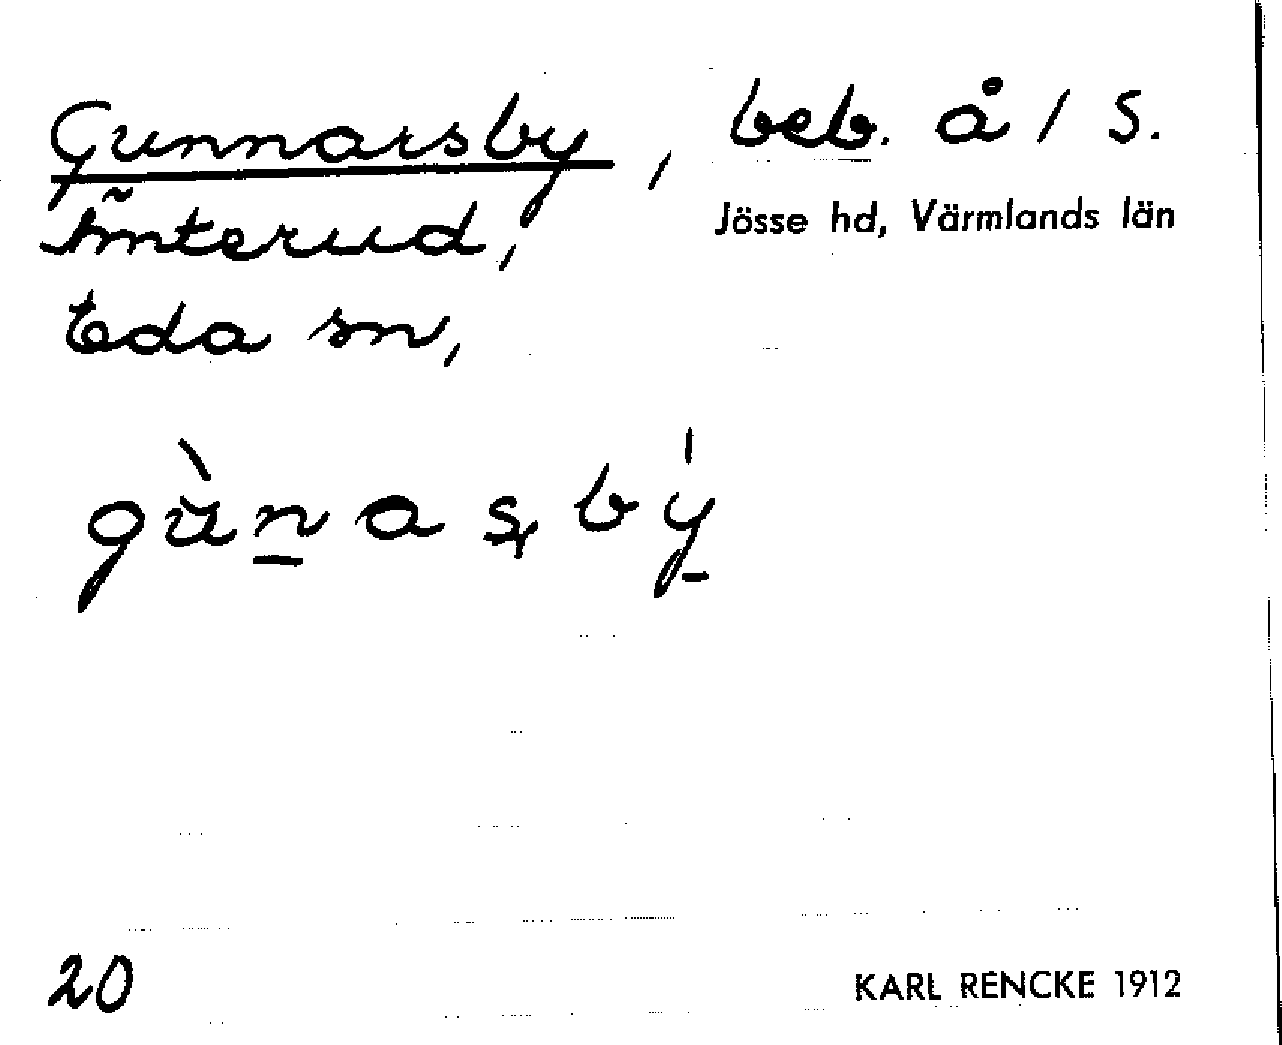 Gunnarsby, beb. å / S.
Ämterud, Jösse hd, Värmlands län
Eda sn,
gùnaʂbý
20 KARL RENCKE 1912